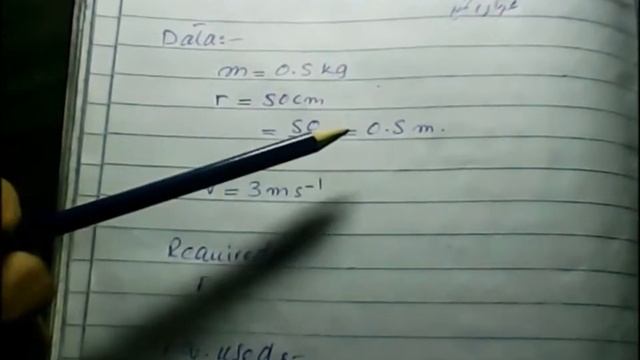 Data:-
m = 0.5 kg
r = 50cm
= 50 = 0.5 m.
v = 3ms⁻¹
Required
used:-